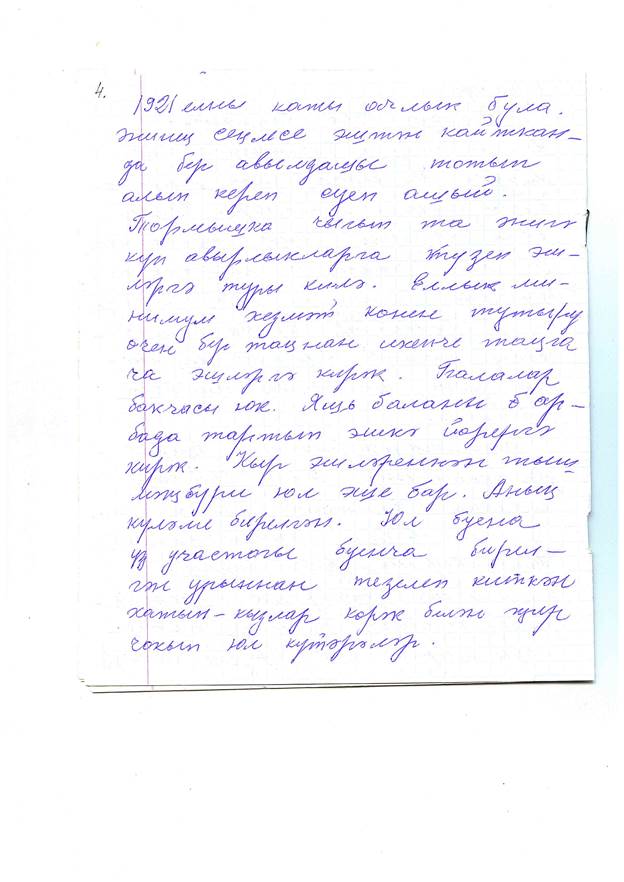 4.
1921 елны каты ачлык була.
Әнинең сеңлесе эштән кайткан-
да бер авылдашы тотып
алып кереп суеп ашый.
Тормышка чыгып та әни
күп авырлыкларга түзеп эш-
ләргә туры килә. Еллык ми-
нимум хезмәт көнен тутыру
өчен бер таңнан икенче таңга
ча эшләргә кирәк. Балалар
бакчасы юк. Яшь баланы ар-
бада тартып эшкә йөрергә
кирәк. Кыр эшләреннән тыш
мәҗбүри юл эше бар. Аның
күләме бирелгән. Юл буена
үз участогы буенча бирел-
гән урыннан тезелеп киткән
хатын-кызлар көрәк белән җир
чокып юл күтәрәләр.